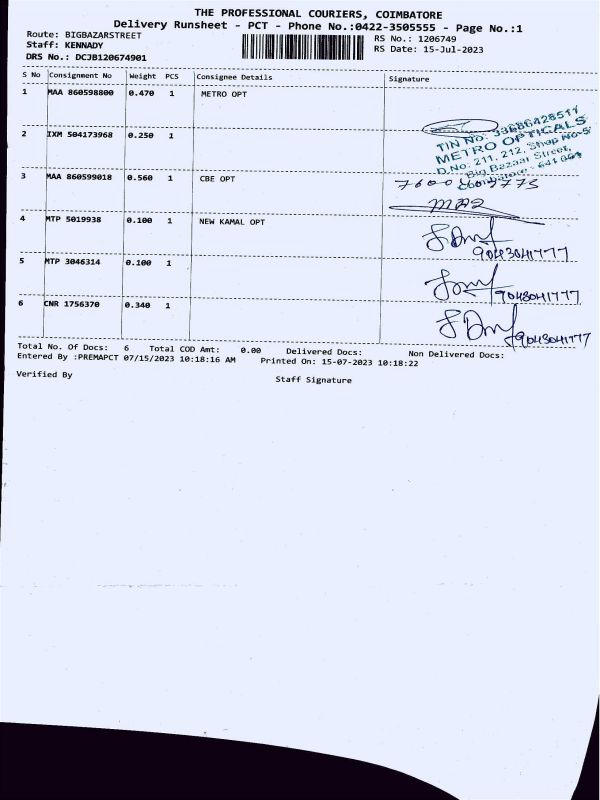 THE PROFESSIONAL COURIERS, COIMBATORE
Delivery Runsheet - PCT - Phone No.:0422-3505555 - Page No.:1
Route: BIGBAZARSTREET
RS No.: 1206749
Staff: KENNADY
RS Date: 15-Jul-2023
DRS No.: DCJB120674901
S No Consignment No Weight PCS Consignee Details Signature
1 MAA 860598800 0.470 1 METRO OPT
TIN No: 33686428511
METRO OPTICALS
D.No. 211, 212, Shop No-5
Big Bazaar Street,
Coimbatore - 641 001
2 IXM 504173968 0.250 1
3 MAA 860599018 0.560 1 CBE OPT
4 MTP 5019938 0.100 1 NEW KAMAL OPT
9043041777
5 MTP 3046314 0.100 1
9043041777
6 CNR 1756370 0.340 1
9043041777
Total No. Of Docs: 6 Total COD Amt: 0.00 Delivered Docs: Non Delivered Docs:
Entered By :PREMAPCT 07/15/2023 10:18:16 AM Printed On: 15-07-2023 10:18:22
Verified By Staff Signature